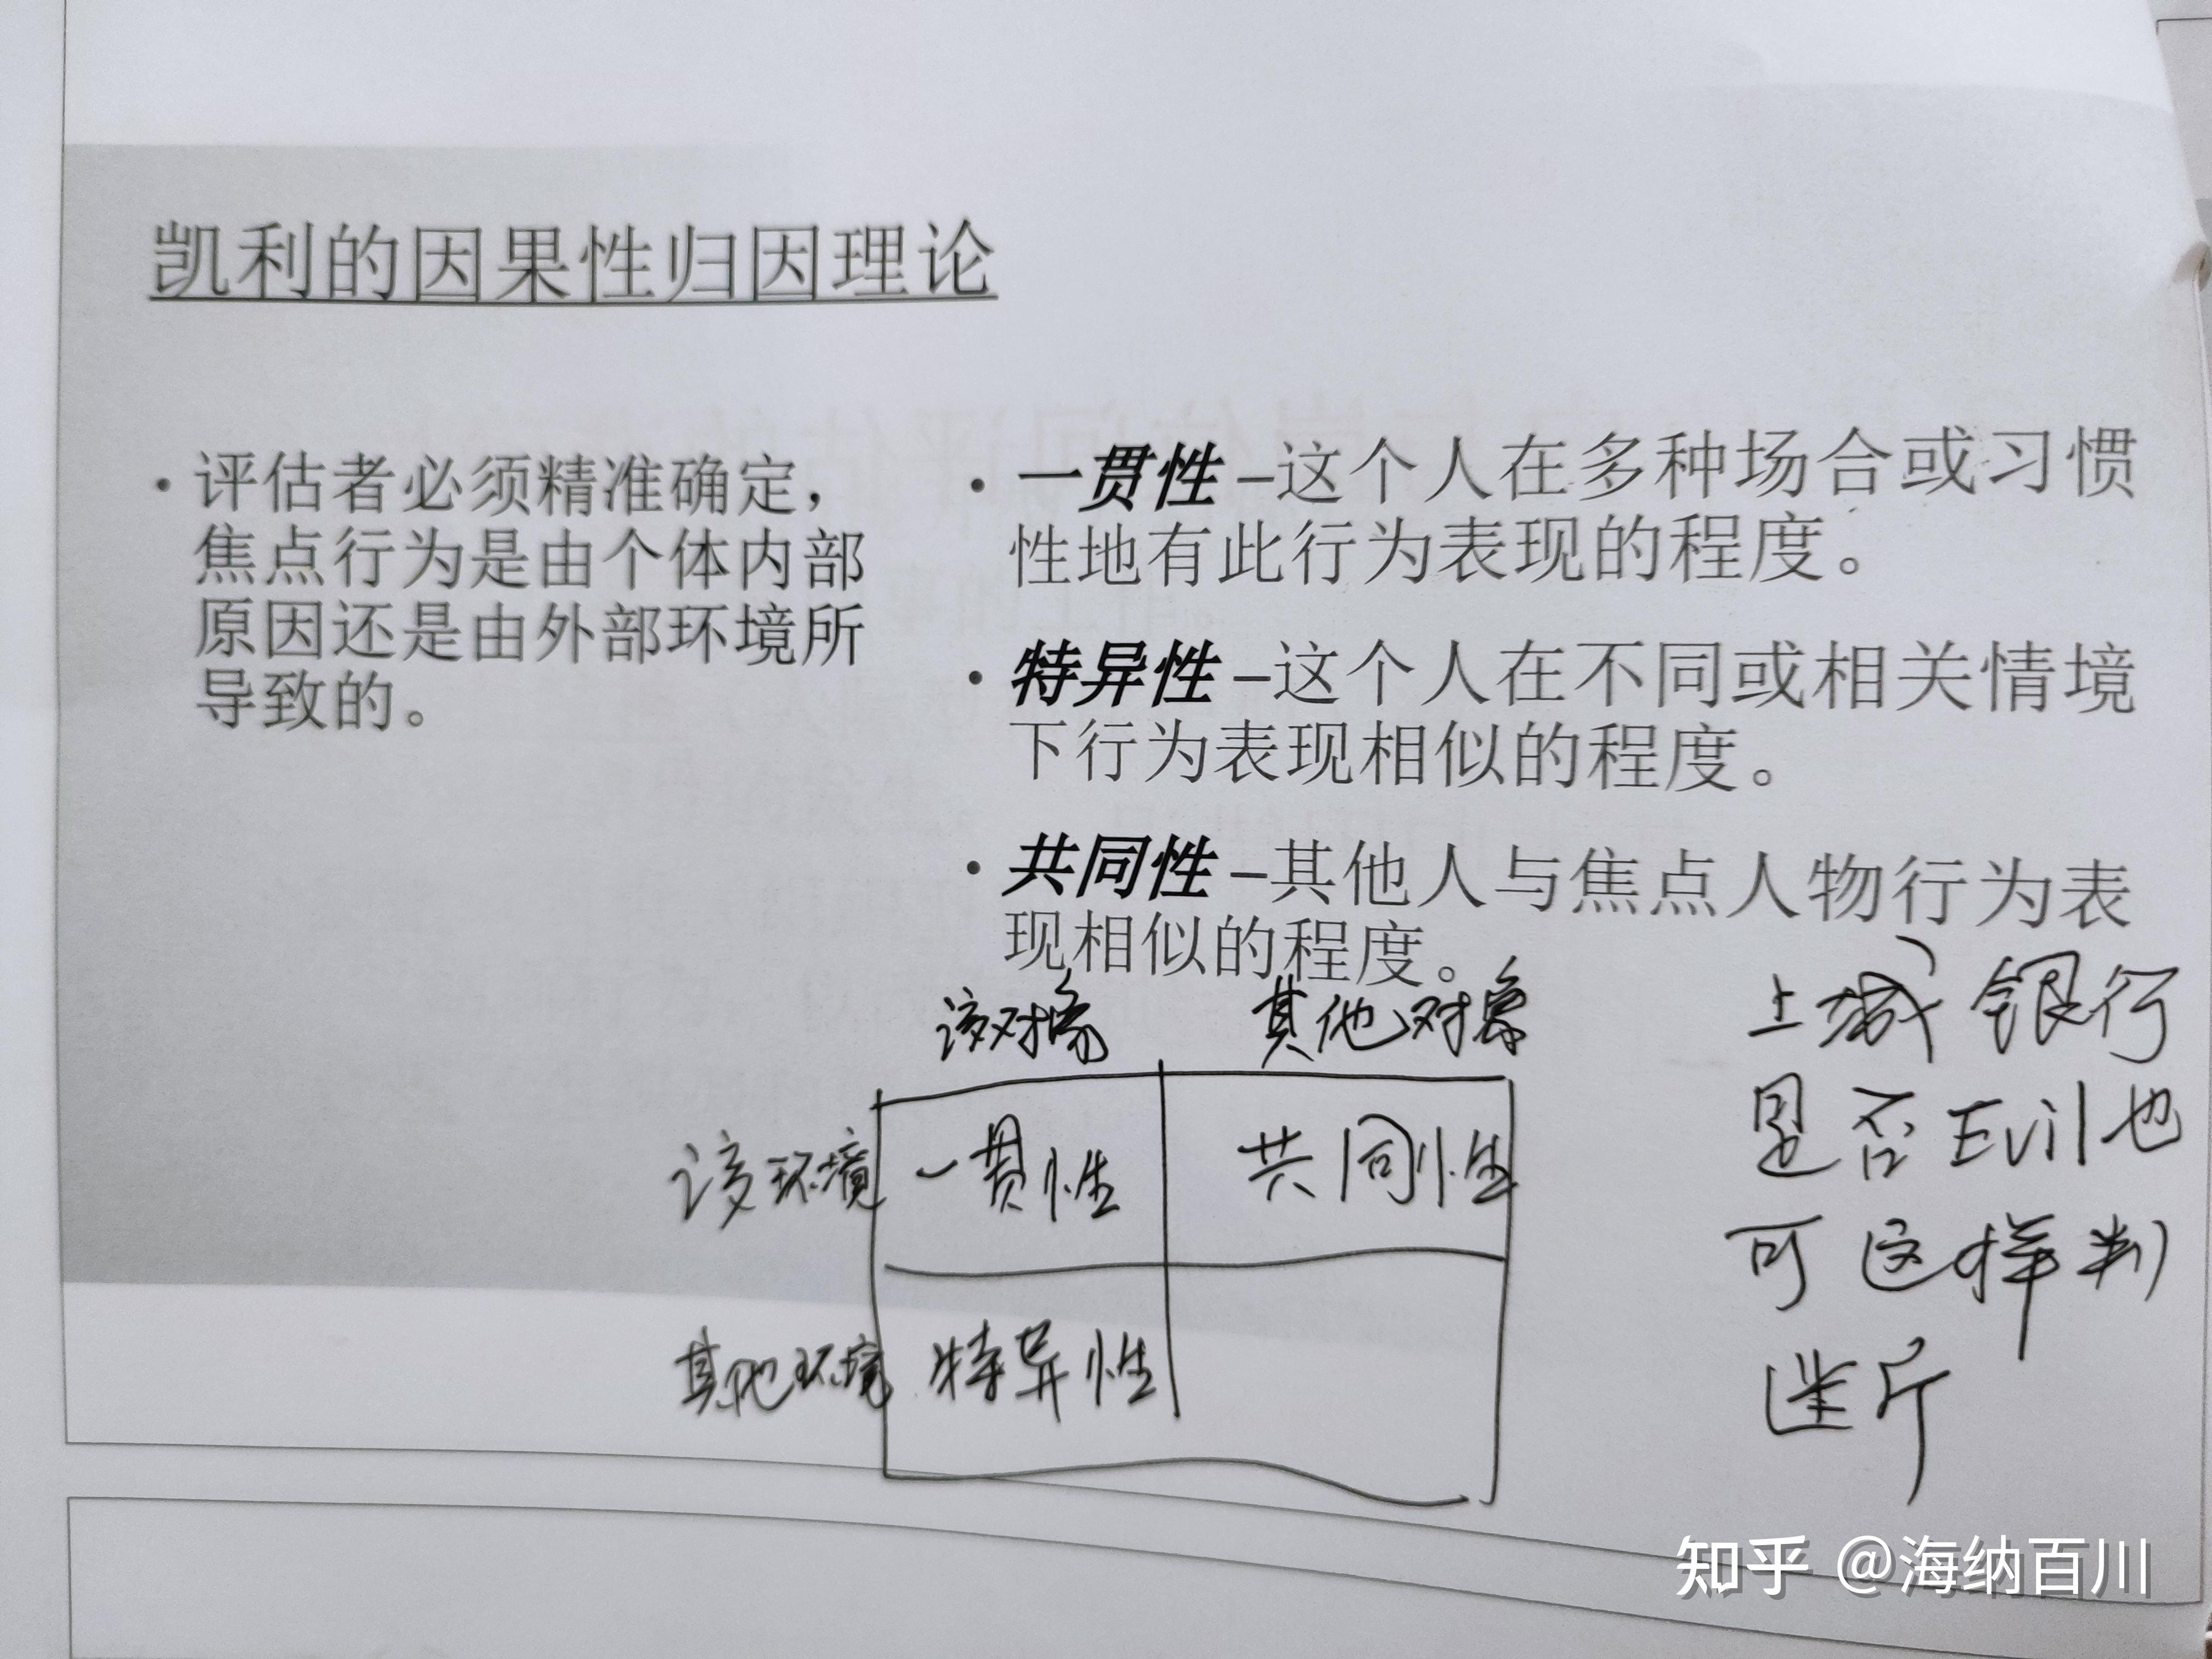 凯利的因果性归因理论
• 评估者必须精准确定，
焦点行为是由个体内部
原因还是由外部环境所
导致的。
• 一贯性 –这个人在多种场合或习惯
性地有此行为表现的程度。
• 特异性 –这个人在不同或相关情境
下行为表现相似的程度。
• 共同性 –其他人与焦点人物行为表
现相似的程度。
该对象 其他对象
该环境 一贯性 共同性
其他环境 特异性
上城 银行
是否Evil也
可这样判
断
知乎 @海纳百川